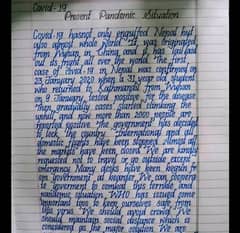 Covid-19
Present Pandemic Situation
Covid-19 has not only engulfed Nepal but
also almost whole world. It was originated
from Wuhan, in China, and it has spread
out its fright all over the world. The first
case of covid-19 in Nepal was confirmed on
23 January 2020 when a 31 year old student
who returned to Kathmandu from Wuhan
on 9 January tested positive for the disease.
Then gradually cases started climbing the
uphill, and now more than 2000 people are
reported positive. The government has decided
to lock the country. International and all
domestic flights have been stopped. Almost all
the markets have been closed. We are always
requested not to travel or go outside except
emergency. Many doctors have been
government
to government to combat this terrible and
pandemic situation. WHO has issued some
important tips to keep ourselves safe from
this virus. We should avoid crowd. We
should maintain social distance which is
considered as the major solution. We are